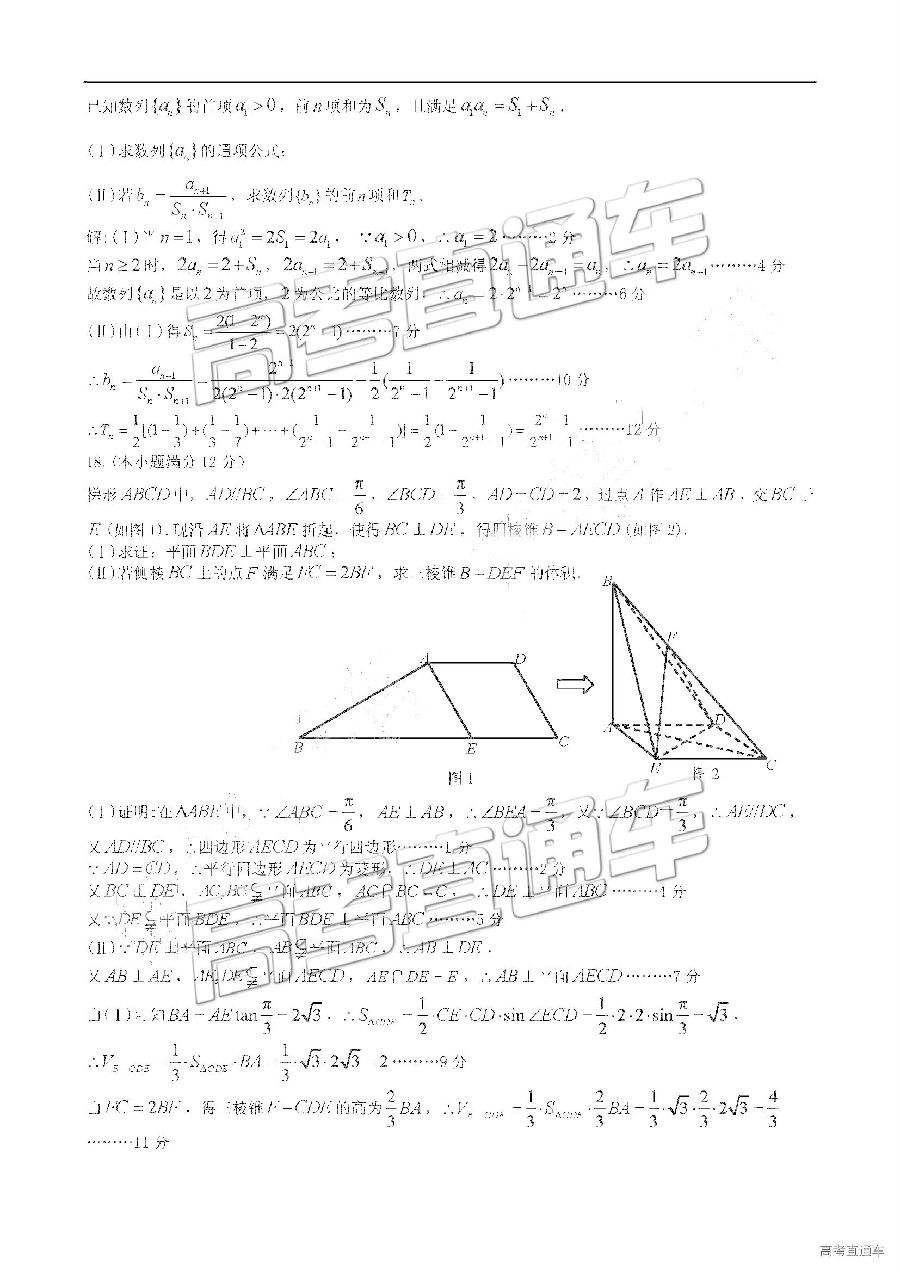 已知数列{aₙ}的首项a₁>0，前n项和为Sₙ，且满足a₁aₙ=S₁+Sₙ．
(Ⅰ)求数列{aₙ}的通项公式；
(Ⅱ)若bₙ=aₙ₊₁/(Sₙ·Sₙ₊₁)，求数列{bₙ}的前n项和Tₙ．
解:(Ⅰ)当n=1，得a₁²=2S₁=2a₁， ∵a₁>0，∴a₁=2………2分
当n≥2时，2aₙ=2+Sₙ，2aₙ₋₁=2+Sₙ₋₁，两式相减得2aₙ-2aₙ₋₁=aₙ，∴aₙ=2aₙ₋₁………4分
故数列{aₙ}是以2为首项，2为公比的等比数列，∴aₙ=2·2ⁿ⁻¹=2ⁿ………6分
(Ⅱ)由(Ⅰ)得Sₙ=2(1-2ⁿ)/(1-2)=2(2ⁿ-1)………7分
∴bₙ=aₙ₊₁/(Sₙ·Sₙ₊₁)=2ⁿ⁺¹/(2(2ⁿ-1)·2(2ⁿ⁺¹-1))=1/2(1/(2ⁿ-1)-1/(2ⁿ⁺¹-1))………10分
∴Tₙ=1/2[(1-1/3)+(1/3-1/7)+…+(1/(2ⁿ-1)-1/(2ⁿ⁺¹-1))]=1/2(1-1/(2ⁿ⁺¹-1))=(2ⁿ-1)/(2ⁿ⁺¹-1)………12分
18.（本小题满分12分）
梯形ABCD中，AD//BC，∠ABC=π/6，∠BCD=π/3，AD=CD=2，过点A作AE⊥AB，交BC于
E（如图1).现沿AE将△ABE折起，使得BC⊥DE，得四棱锥B-AECD(如图2).
(Ⅰ)求证：平面BDE⊥平面ABC；
(Ⅱ)若侧棱BC上的点F满足FC=2BF，求三棱锥B-DEF的体积．
B
F
A D
A D
B E C
E C
图1
图2
(Ⅰ)证明:在△ABE中，∵∠ABC=π/6，AE⊥AB，∴∠BEA=π/3，又∵∠BCD=π/3，∴AE//DC，
又AD//BC，∴四边形AECD为平行四边形………1分
∵AD=CD，∴平行四边形AECD为菱形，∴DE⊥AC………2分
又BC⊥DE，AC,BC⊊平面ABC，AC∩BC=C，∴DE⊥平面ABC………4分
又∵DE⊊平面BDE，∴平面BDE⊥平面ABC………5分
(Ⅱ)∵DE⊥平面ABC，AB⊊平面ABC，∴AB⊥DE．
又AB⊥AE，AE,DE⊊平面AECD，AE∩DE=E，∴AB⊥平面AECD………7分
由(Ⅰ)可知BA=AEtanπ/3=2√3，∴S△CDE=1/2·CE·CD·sin∠ECD=1/2·2·2·sinπ/3=√3，
∴V_B-CDE=1/3·S△CDE·BA=1/3·√3·2√3=2………9分
由FC=2BF，得三棱锥F-CDE的高为2/3BA，∴V_F-CDE=1/3·S△CDE·2/3BA=1/3·√3·2/3·2√3=4/3
………11分
高考直通车
高考直通车
高考直通车